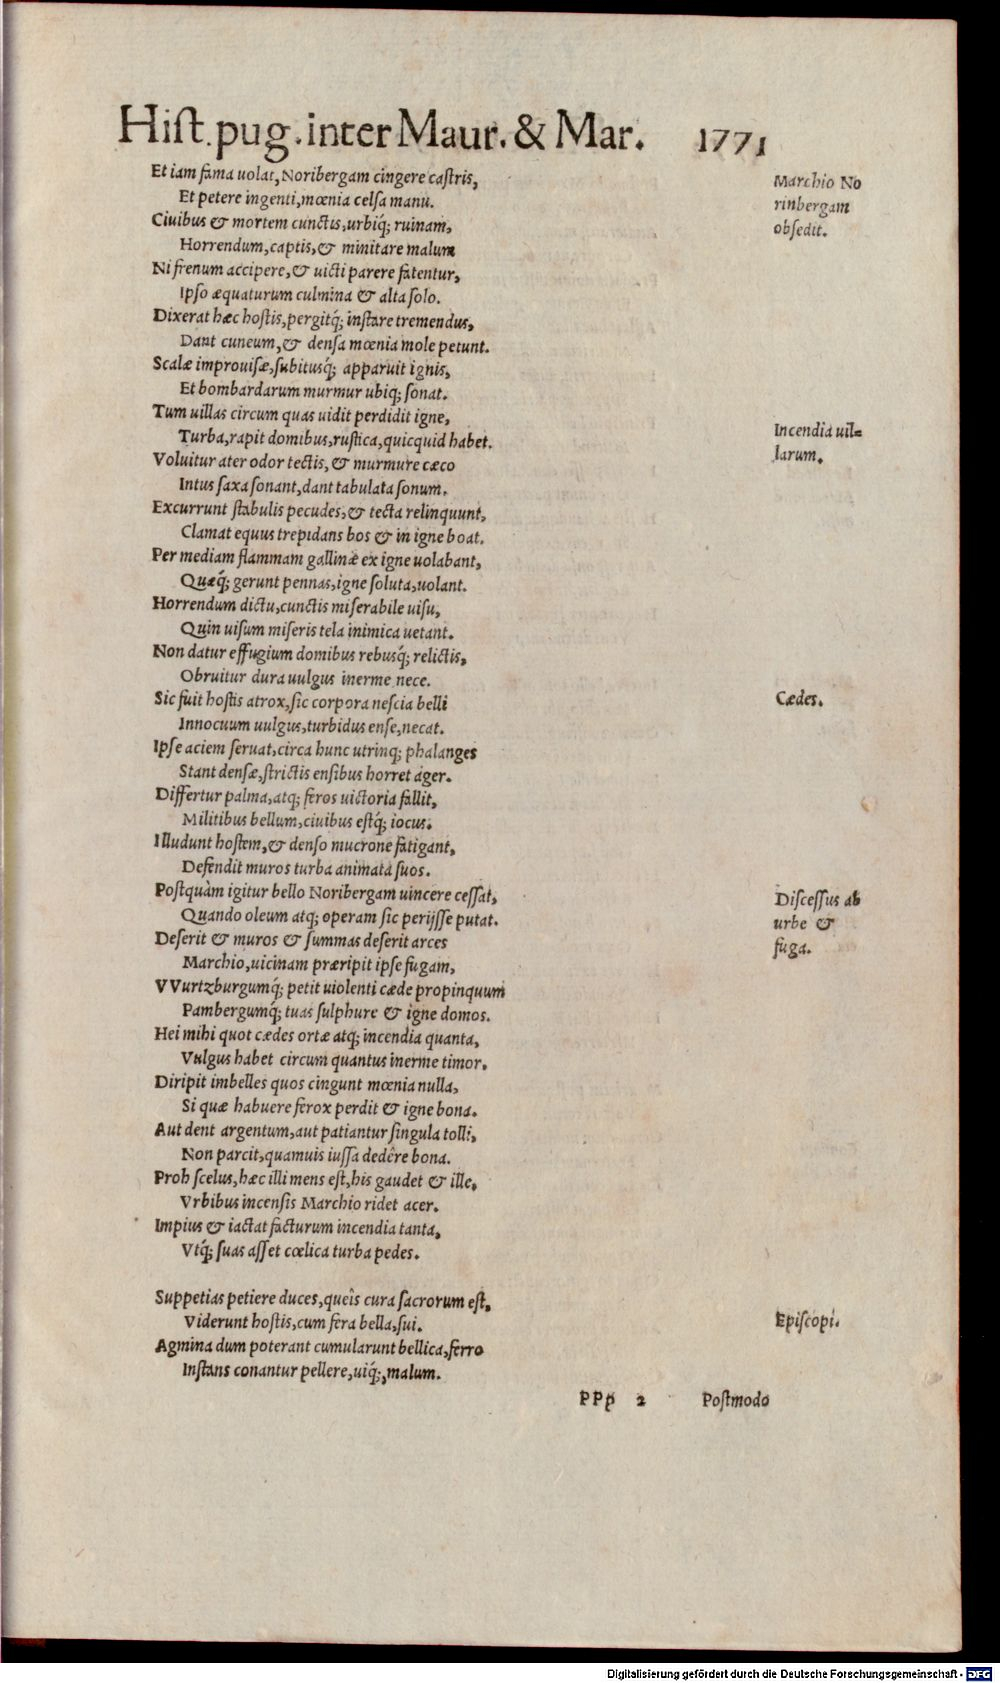 Hiſt. pug. inter Maur. & Mar. 1771
Et iam fama uolat, Noribergam cingere caſtris,
Et petere ingenti, mœnia celſa manu.
Ciuibus & mortem cunctis, urbiq́; ruinam,
Horrendum, captis, & minitare malum
Ni frenum accipere, & uicti parere fatentur,
Ipſo æquaturum culmina & alta ſolo.
Dixerat hæc hoſtis, pergitq́; inſtare tremendus,
Dant cuneum, & denſa mœnia mole petunt.
Scalæ improuiſæ, ſubitusq́; apparuit ignis,
Et bombardarum murmur ubiq; ſonat.
Tum uillas circum quas uidit perdidit igne,
Turba, rapit domibus, ruſtica, quicquid habet.
Voluitur ater odor tectis, & murmure cæco
Intus ſaxa ſonant, dant tabulata ſonum.
Excurrunt ſtabulis pecudes, & tecta relinquunt,
Clamat equus trepidans bos & in igne boat.
Per mediam flammam gallinæ ex igne uolabant,
Quæq́; gerunt pennas, igne ſoluta, uolant.
Horrendum dictu, cunctis miſerabile uiſu,
Quin uiſum miſeris tela inimica uetant.
Non datur effugium domibus rebusq́; relictis,
Obruitur dura uulgus inerme nece.
Sic fuit hoſtis atrox, ſic corpora neſcia belli
Innocuum uulgus, turbidus enſe, necat.
Ipſe aciem ſeruat, circa hunc utrinq; phalanges
Stant denſæ, ſtrictis enſibus horret ager.
Differtur palma, atq; feros uictoria fallit,
Militibus bellum, ciuibus eſtq́; iocus.
Illudunt hoſtem, & denſo mucrone fatigant,
Defendit muros turba animata ſuos.
Poſtquàm igitur bello Noribergam uincere ceſſat,
Quando oleum atq; operam ſic perijſſe putat.
Deſerit & muros & ſummas deſerit arces
Marchio, uicinam præripit ipſe fugam,
VVurtzburgumq́; petit uiolenti cæde propinquum
Pambergumq́; tuas ſulphure & igne domos.
Hei mihi quot cædes ortæ atq; incendia quanta,
Vulgus habet circum quantus inerme timor.
Diripit imbelles quos cingunt mœnia nulla,
Si quæ habuere ferox perdit & igne bona.
Aut dent argentum, aut patiantur ſingula tolli,
Non parcit, quamuis iuſſa dedêre bona.
Proh ſcelus, hæc illi mens eſt, his gaudet & ille,
Vrbibus incenſis Marchio ridet acer.
Impius & iactat facturum incendia tanta,
Vtq́; ſuas aſſet cœlica turba pedes.
Suppetias petiere duces, queîs cura ſacrorum eſt,
Viderunt hoſtis, cum fera bella, ſui.
Agmina dum poterant cumularunt bellica, ferro
Inſtans conantur pellere, uiq́;, malum.
PPp 2 Poſtmodo
Marchio No
rinbergam
obſedit.
Incendia uil=
larum.
Cædes.
Diſceſſus ab
urbe &
fuga.
Epiſcopi.
Digitalisierung gefördert durch die Deutsche Forschungsgemeinschaft - DFG